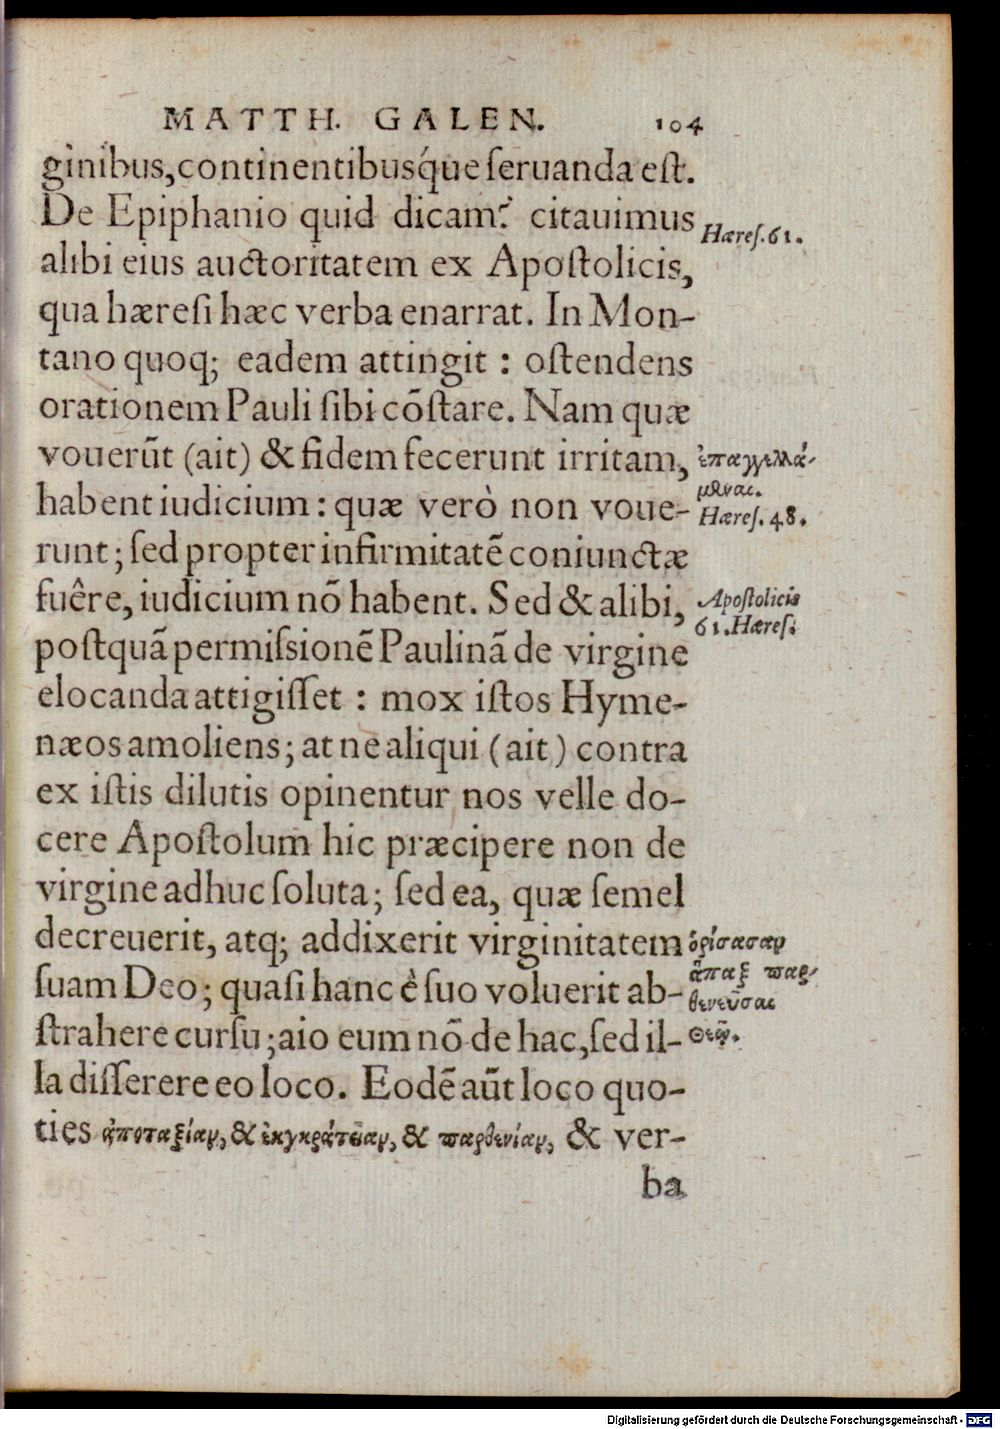 MATTH. GALEN. 104
ginibus, continentibusq́ue ſeruanda eſt.
De Epiphanio quid dicam? citauimus
Hæreſ. 61.
alibi eius auctoritatem ex Apoſtolicis,
qua hæreſi hæc verba enarrat. In Mon-
tano quoq; eadem attingit : oſtendens
orationem Pauli ſibi cõſtare. Nam quæ
vouerũt (ait) & fidem fecerunt irritam,
ἐπαγγελλά-
μεναι.
habent iudicium : quæ verò non voue-
Hæreſ. 48.
runt; ſed propter infirmitatẽ coniunctæ
fuêre, iudicium nõ habent. Sed & alibi,
Apoſtolicis
61. Hæreſ.
poſtquã permiſsionẽ Paulinã de virgine
elocanda attigiſſet : mox iſtos Hyme-
næos amoliens; at ne aliqui (ait) contra
ex iſtis dilutis opinentur nos velle do-
cere Apoſtolum hic præcipere non de
virgine adhuc ſoluta; ſed ea, quæ ſemel
decreuerit, atq; addixerit virginitatem
ὁρίσασαν
ἅπαξ παρ-
θενεῦσαι
Θεῷ.
ſuam Deo; quaſi hanc è ſuo voluerit ab-
ſtrahere curſu; aio eum nõ de hac, ſed il-
la diſſerere eo loco. Eodẽ aũt loco quo-
ties ἀποταξίαν, & ἐκγκράτειαν, & παρθενίαν, & ver-
ba
Digitalisierung gefördert durch die Deutsche Forschungsgemeinschaft - DFG